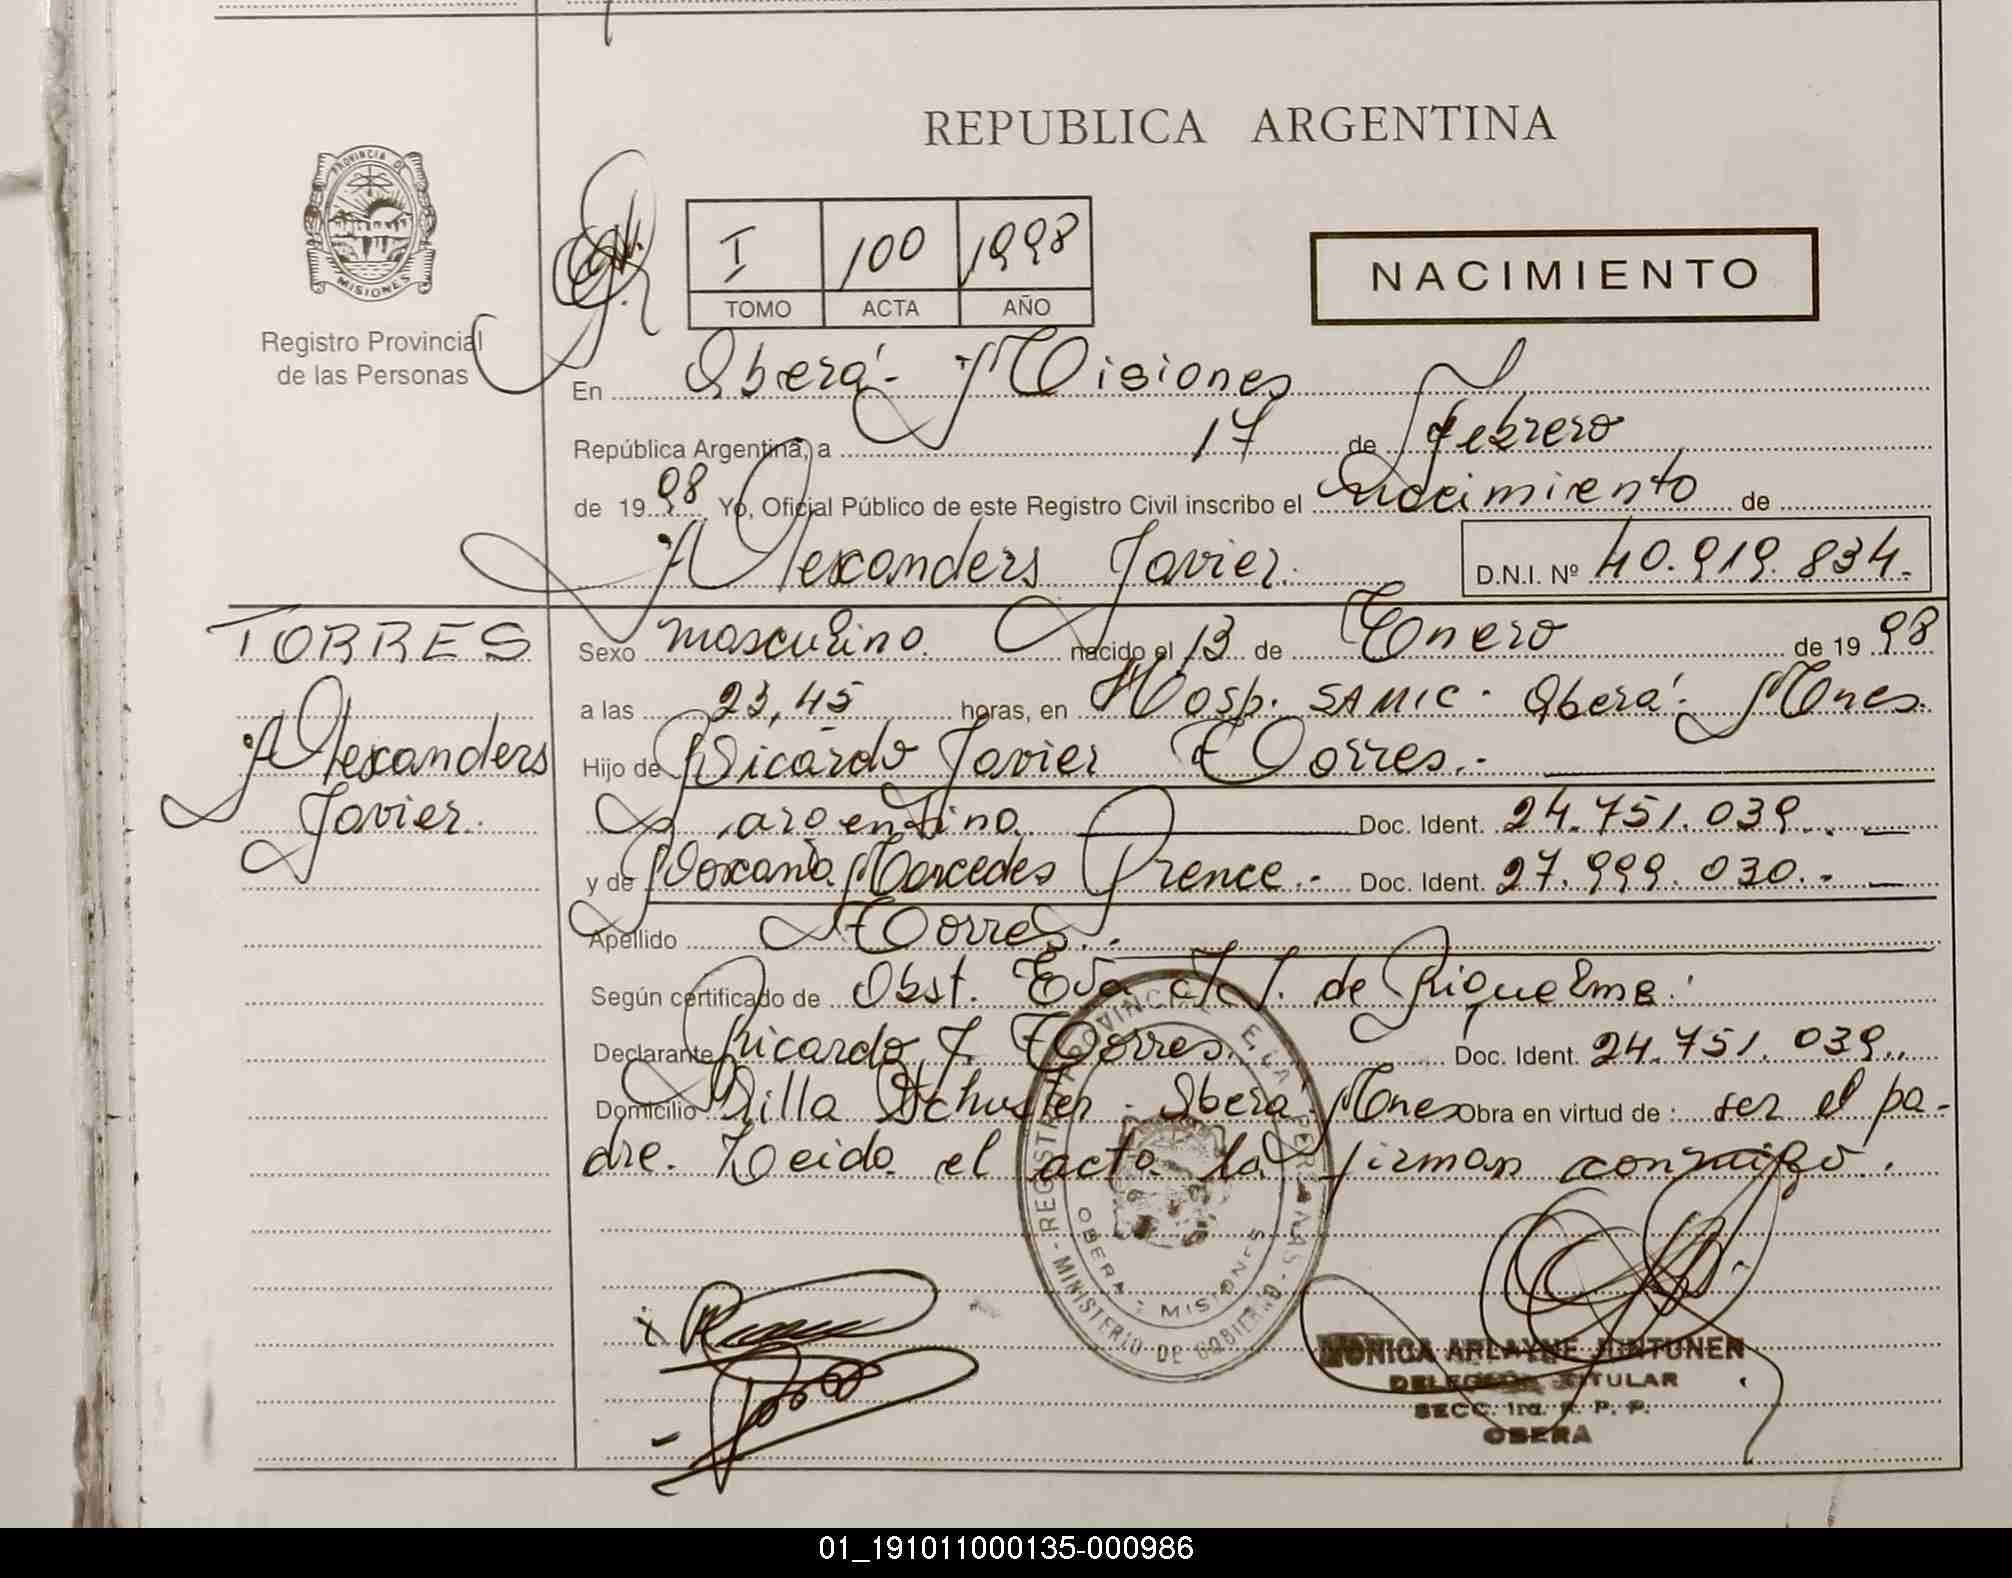 REPUBLICA ARGENTINA
PROVINCIA DE
MISIONES
Registro Provincial
de las Personas
I 100 1998
TOMO ACTA AÑO
NACIMIENTO
En Oberá - Misiones
República Argentina, a 17 de Febrero
de 1998 Yo, Oficial Público de este Registro Civil inscribo el nacimiento de
Alexanders Javier. D.N.I. Nº 40.919.834.
TORRES
Alexanders
Javier.
Sexo masculino. nacido el 13 de Enero de 1998
a las 23,45 horas, en Hosp. SAMIC. Oberá - Mnes.
Hijo de Ricardo Javier Torres.-
argentino Doc. Ident. 24.751.039.. —
y de Roxana Mercedes Prence.- Doc. Ident. 27.999.030.- —
Apellido Torres..
Según certificado de Obst. Eva de Riquelme.
Declarante Ricardo J. Torres. Doc. Ident. 24.751.039..
Domicilio Villa Schuster - Oberá - Mnes Obra en virtud de : ser el pa-
dre. Leida el acta la firman conmigo.
OBERA - MISIONES
MINISTERIO DE GOBIERNO
MONICA ARLAYNE JUNTUNEN
DELEGADA TITULAR
SECC. 1ra. R. P. P.
OBERA
01_191011000135-000986